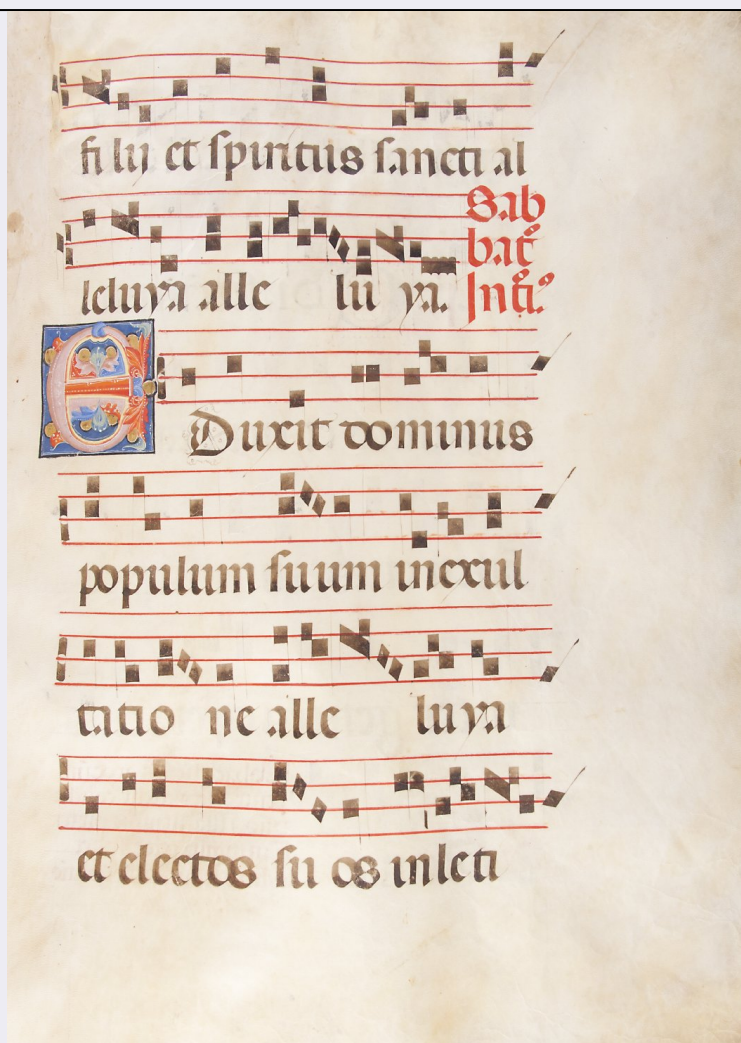 filii et spiritus sancti al
leluya alle lu ya. Sab
bat̃
Int̃i.
EDuxit dominus
populum suum in exul
tatio ne alle luya
et electos su os in leti